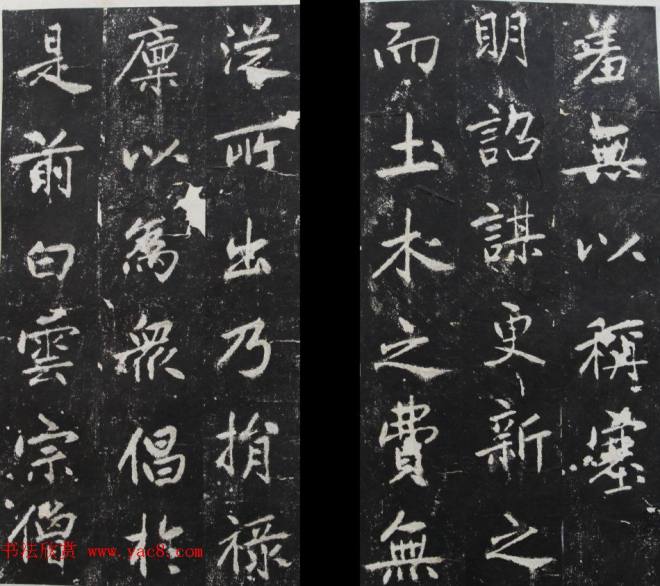 羞無以稱塞
明詔謀更新之
而土木之費無
從所出乃捐祿
廩以為衆倡於
是前白雲宗僧
书法欣赏 www.yac8.com